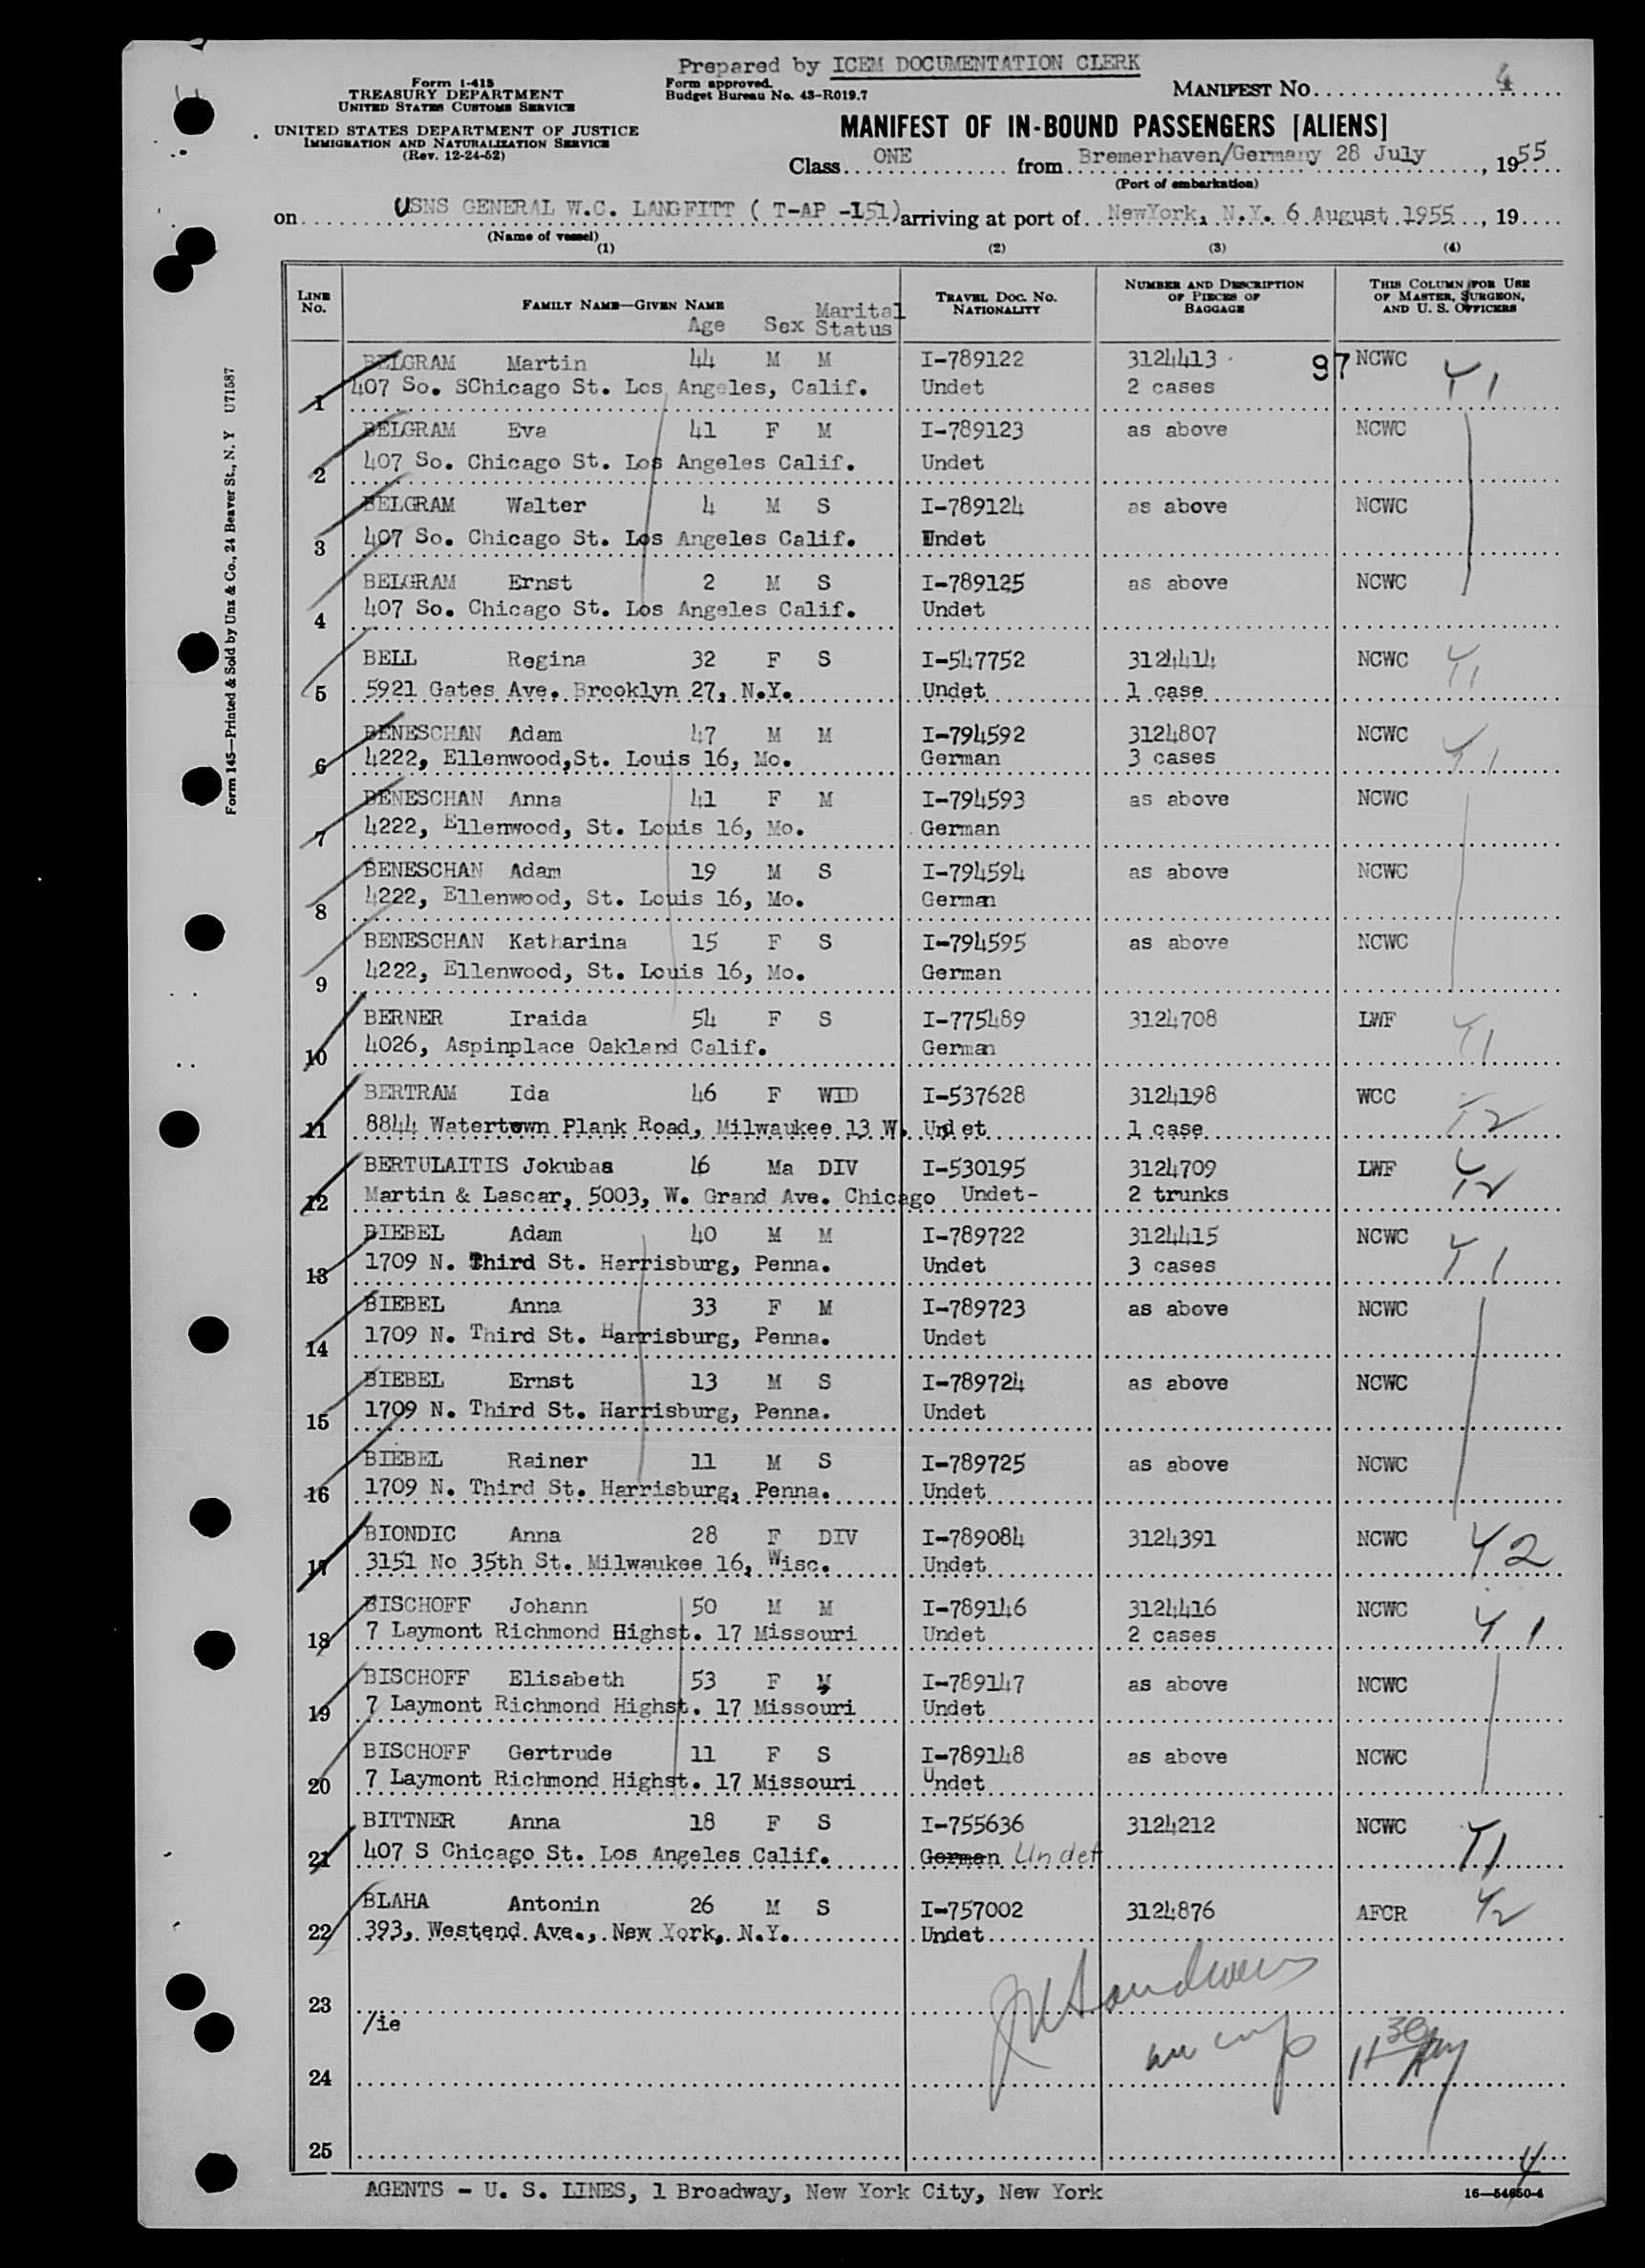 Prepared by ICEM DOCUMENTATION CLERK
Form I-415
TREASURY DEPARTMENT
UNITED STATES CUSTOMS SERVICE
UNITED STATES DEPARTMENT OF JUSTICE
IMMIGRATION AND NATURALIZATION SERVICE
(Rev. 12-24-52)
Form approved.
Budget Bureau No. 43-R019.7
MANIFEST NO. 4
MANIFEST OF IN-BOUND PASSENGERS [ALIENS]
Class ONE from Bremerhaven/Germany 28 July, 1955
(Port of embarkation)
on USNS GENERAL W.C. LANGFITT ( T-AP -151) arriving at port of NewYork, N.Y. 6 August 1955, 19
(Name of vessel)
(1) (2) (3) (4)
LINE NO. FAMILY NAME—GIVEN NAME Age Sex Marital Status TRAVEL DOC. NO. NATIONALITY NUMBER AND DESCRIPTION OF PIECES OF BAGGAGE THIS COLUMN FOR USE OF MASTER, SURGEON, AND U. S. OFFICERS
BELGRAM Martin 44 M M I-789122 3124413 97 NCWC Y1
1 407 So. SChicago St. Los Angeles, Calif. Undet 2 cases
BELGRAM Eva 41 F M I-789123 as above NCWC
2 407 So. Chicago St. Los Angeles Calif. Undet
BELGRAM Walter 4 M S I-789124 as above NCWC
3 407 So. Chicago St. Los Angeles Calif. Undet
BELGRAM Ernst 2 M S I-789125 as above NCWC
4 407 So. Chicago St. Los Angeles Calif. Undet
BELL Regina 32 F S I-547752 3124414 NCWC Y1
5 5921 Gates Ave. Brooklyn 27, N.Y. Undet 1 case
BENESCHAN Adam 47 M M I-794592 3124807 NCWC Y1
6 4222, Ellenwood,St. Louis 16, Mo. German 3 cases
BENESCHAN Anna 41 F M I-794593 as above NCWC
7 4222, Ellenwood, St. Louis 16, Mo. German
BENESCHAN Adam 19 M S I-794594 as above NCWC
8 4222, Ellenwood, St. Louis 16, Mo. German
BENESCHAN Katharina 15 F S I-794595 as above NCWC
9 4222, Ellenwood, St. Louis 16, Mo. German
BERNER Iraida 54 F S I-775489 3124708 LWF Y1
10 4026, Aspinplace Oakland Calif. German
BERTRAM Ida 46 F WID I-537628 3124198 WCC Y2
11 8844 Watertown Plank Road, Milwaukee 13 W. Undet 1 case
BERTULAITIS Jokubas 16 Ma DIV I-530195 3124709 LWF Y2
12 Martin & Lascar, 5003, W. Grand Ave. Chicago Undet- 2 trunks
BIEBEL Adam 40 M M I-789722 3124415 NCWC Y1
13 1709 N. Third St. Harrisburg, Penna. Undet 3 cases
BIEBEL Anna 33 F M I-789723 as above NCWC
14 1709 N. Third St. Harrisburg, Penna. Undet
BIEBEL Ernst 13 M S I-789724 as above NCWC
15 1709 N. Third St. Harrisburg, Penna. Undet
BIEBEL Rainer 11 M S I-789725 as above NCWC
16 1709 N. Third St. Harrisburg, Penna. Undet
BIONDIC Anna 28 F DIV I-789084 3124391 NCWC Y2
17 3151 No 35th St. Milwaukee 16, Wisc. Undet
BISCHOFF Johann 50 M M I-789146 3124416 NCWC Y1
18 7 Laymont Richmond Highst. 17 Missouri Undet 2 cases
BISCHOFF Elisabeth 53 F M I-789147 as above NCWC
19 7 Laymont Richmond Highst. 17 Missouri Undet
BISCHOFF Gertrude 11 F S I-789148 as above NCWC
20 7 Laymont Richmond Highst. 17 Missouri Undet
BITTNER Anna 18 F S I-755636 3124212 NCWC Y1
21 407 S Chicago St. Los Angeles Calif. German Undet
BLAHA Antonin 26 M S I-757002 3124876 AFCR Y2
22 393, Westend Ave., New York, N.Y. Undet
23
/ie
24
25
4
AGENTS - U. S. LINES, 1 Broadway, New York City, New York
16—54650-4
Form 145—Printed & Sold by Unz & Co., 24 Beaver St., N. Y U71587